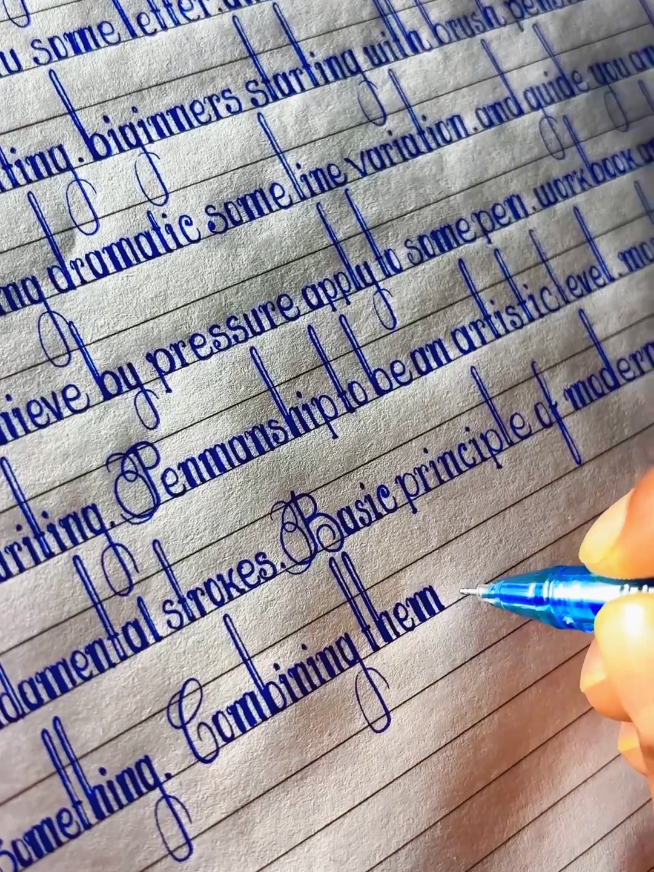 some letter.
ting. biginners starting with brush pens.
ng dramatic some line variation. and guide you an
hieve by pressure apply to some pen. workbook an
writing. Penmanship to be an artistic level. mo
damental strokes. Basic principle of modern
something. Combining them